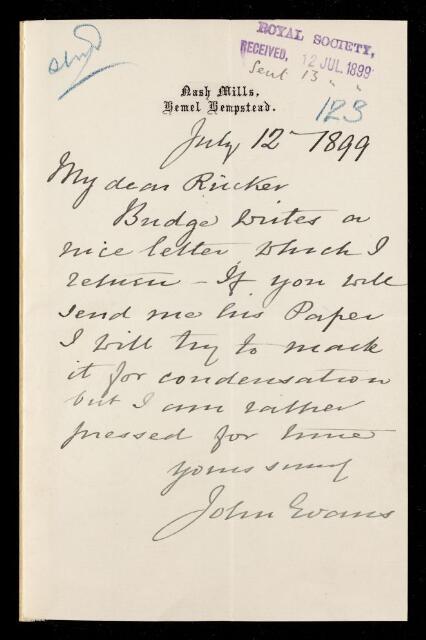 ROYAL SOCIETY,
RECEIVED, 12 JUL. 1899
Sent 13 " "
123
Nash Mills,
Hemel Hempstead.
July 12 1899
My dear Rücker
Budge writes a
nice letter, which I
return – If you will
send me his Paper
I will try to mark
it for condensation
but I am rather
pressed for time
yours
John Evans